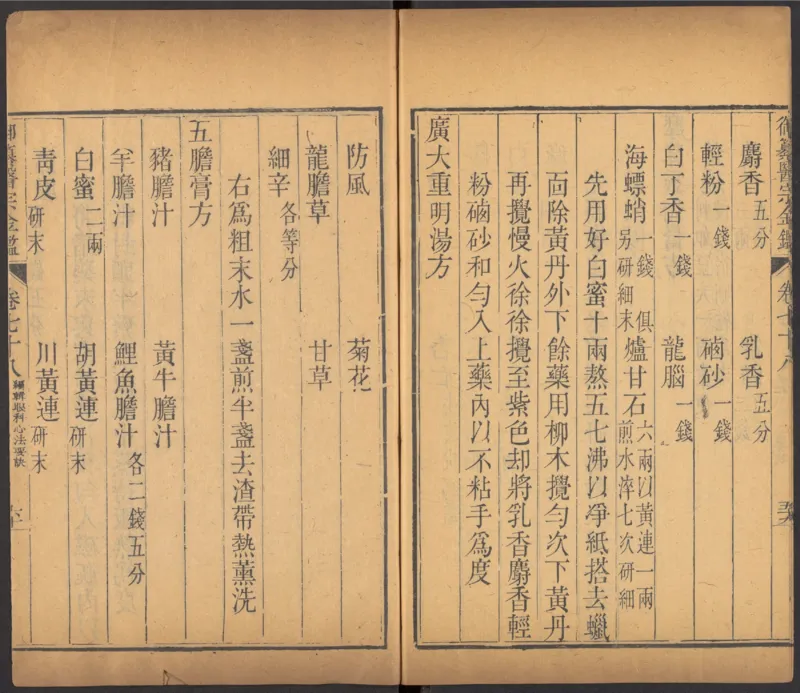 御纂醫宗金鑑 卷七十八
麝香五分 乳香五分
輕粉一錢 硇砂一錢
白丁香一錢 龍腦一錢
海螵蛸一錢俱另研細末 爐甘石六兩以黃連一兩煎水淬七次研細
先用好白蜜十兩熬五七沸以淨紙搭去蠟
面除黃丹外下餘藥用柳木攪勻次下黃丹
再攪慢火徐徐攪至紫色却將乳香麝香輕
粉硇砂和勻入上藥內以不粘手爲度
廣大重明湯方
防風 菊花
龍膽草 甘草
細辛各等分
右爲粗末水一盞煎半盞去渣帶熱薰洗
五膽膏方
豬膽汁 黃牛膽汁
羊膽汁 鯉魚膽汁各二錢五分
白蜜二兩 胡黃連研末
青皮研末 川黃連研末
御纂醫宗金鑑 卷七十八 編輯眼科心法要訣